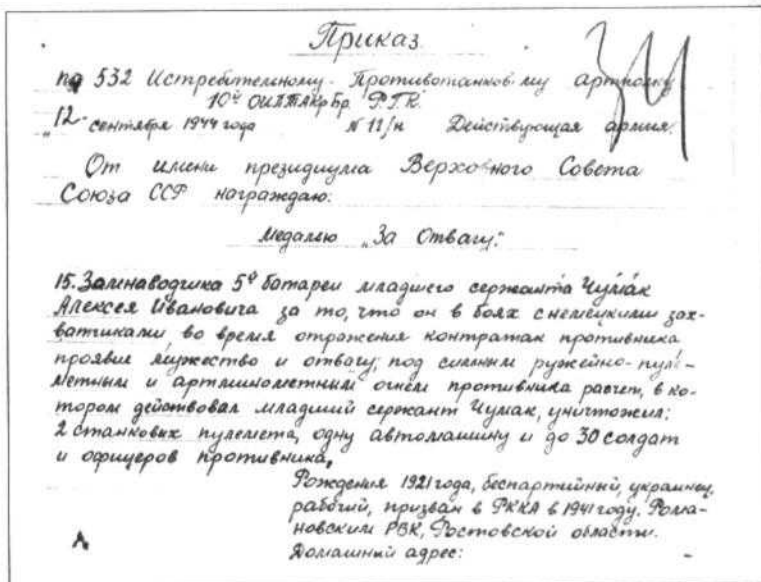 Приказ
по 532 Истребительному-Противотанковому артполку
10й ОИПТАКрБр Р.Г.К.
"12" сентября 1944 года № 11/н Действующая армия.
От имени президиума Верховного Совета
Союза ССР награждаю:
Медалью "За Отвагу":
15. Замнаводчика 5й батареи младшего сержанта Чумак
Алексея Ивановича за то, что он в боях с немецкими зах-
ватчиками во время отражения контратак противника
проявил мужество и отвагу; под сильным ружейно-пуле-
метным и артминометным огнем противника расчет, в ко-
тором действовал младший сержант Чумак, уничтожил:
2 станковых пулемета, одну автомашину и до 30 солдат
и офицеров противника,
Рождения 1921 года, беспартийный, украинец,
рабочий, призван в РККА в 1941 году. Рома-
новским РВК, Ростовской области.
Домашный адрес: -